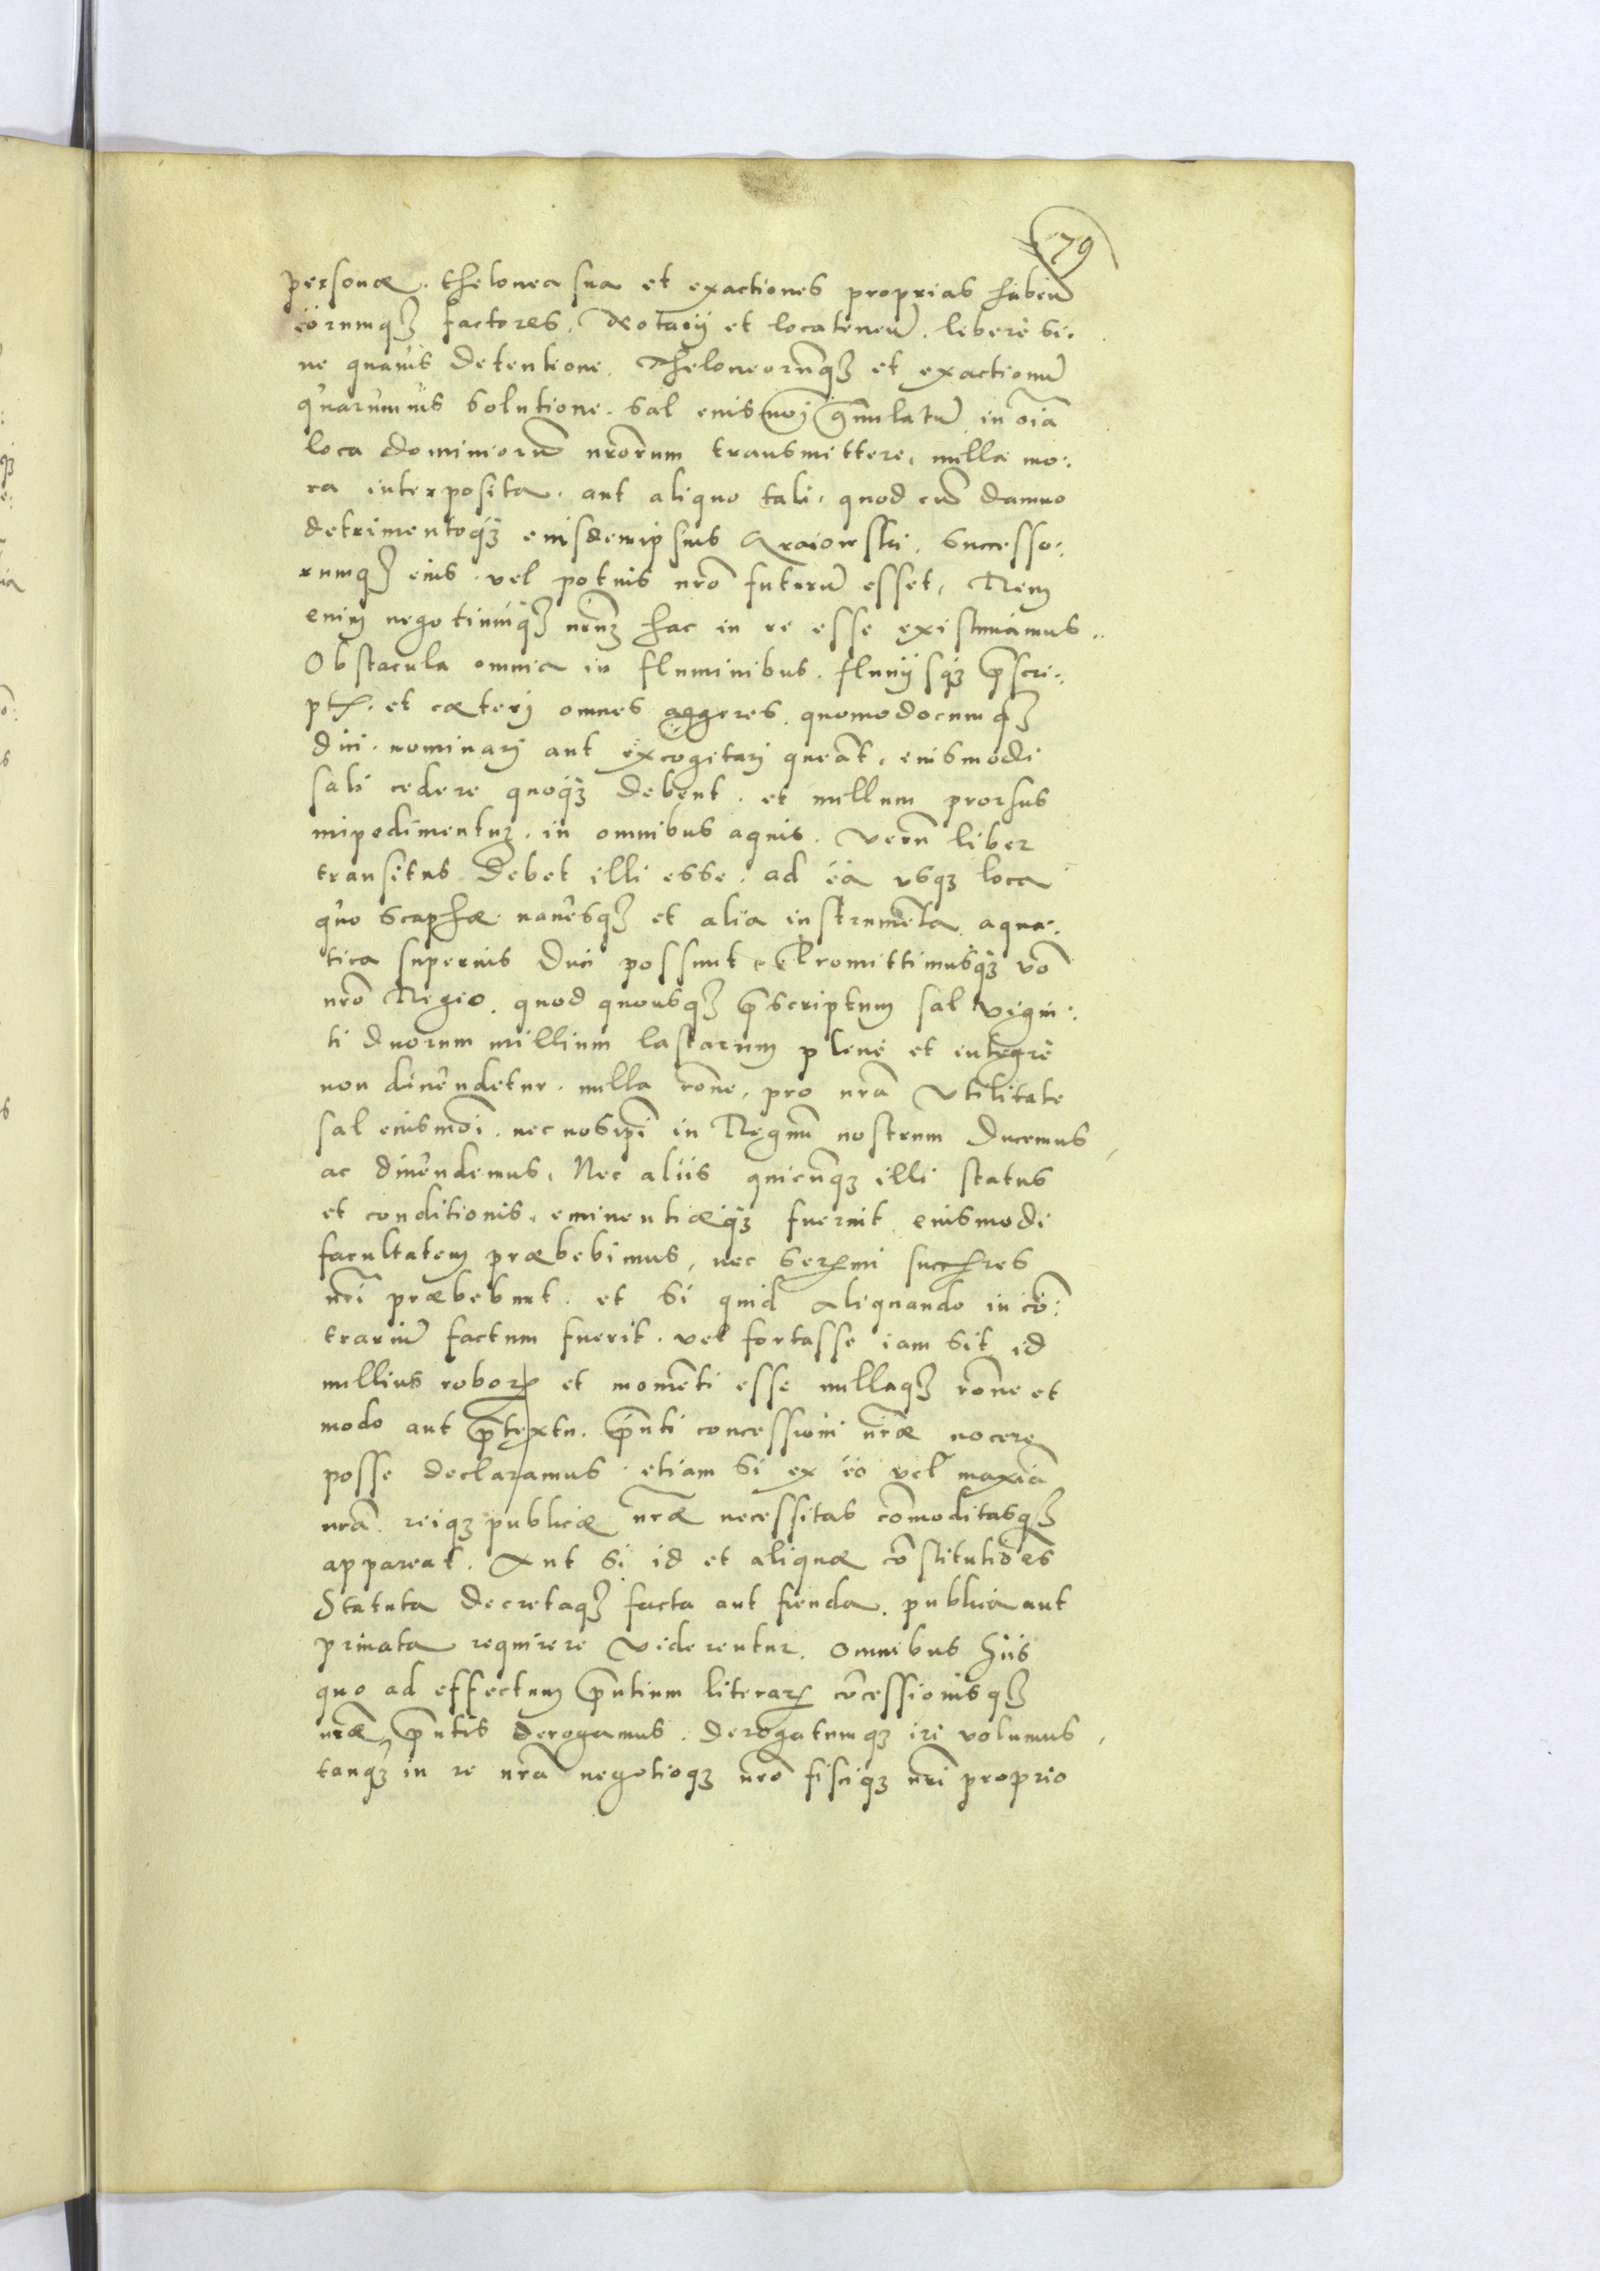 79
personæ. thelonea sua et exactiones proprias habeñ
eorumq3 factores. Notarij et locateneñ. liberè si:
ne quauis detentione. Theloneorūq3 et exactionū
quarumuis solutione. sal eiusmōj grānulatū in oīa
loca dominiorū nrōrum transmittere, nulla mo:
ra interposita. aut aliquo tali. quod cū damno
detrimentoq3 eiusdemipsius Araiowski. Successo:
rumq3 eius. vel potius nrō futurū esset, Rem
enim negotiumq3 nrūm hac in re esse existimamus.
Obstacula omnia in fluminibus. fluuijsq3 p̄scri:
pt. et cæterj omnes aggeres. quomodocumq3
dici. nominarj aut excogitarj queāt, eiusmodi
sali cedere quoq3 debent. et nullum prorsus
impedimentum. in omnibus aquis. verū liber
transitus debet illi esse. ad ea vsq3 loca
quo scaphæ. nauesq3 et alia instrumēta aqua:
tica superius duci possunt. Promittimusq3 vō
nrō Regio. quod quousq3 p̄scriptum sal vigin:
ti duorum millium lastarum plenè et integrè
non diuēndetur. nulla rōne, pro nrā vtilitate
sal eiusmōi. nec nosipsi in Regnū nostrum ducemus,
ac diuēndemus, Nec aliis quicūq3 illi status
et conditionis. eminentiæq3 fuerint eiusmodi
facultatem præbebimus, nec serēmi succ̄res
nrī præbebunt. et si quid aliquando in cō:
trariū factum fuerit. vel fortasse iam sit id
nullius robor et momēti esse nullaq3 rōne et
modo aut p̄textu. p̄nti concessioni nrāe nocere
posse declaramus. etiam si ex eo vel maxīa
nrā. reiq3 publicæ nrāe necessitas cōmoditasq3
appareat. Aut si id et aliquæ cōstitutiōes
Statuta decretaq3 facta aut fienda. publica aut
priuata requirere viderentur. omnibus hiis
quo ad effectum p̄ntium literar cōcessionisq3
nrāe p̄ntis derogamus. derogatumq3 iri volumus,
tanq3 in re nrā negotioq3 nrō fisciq3 nrī proprio